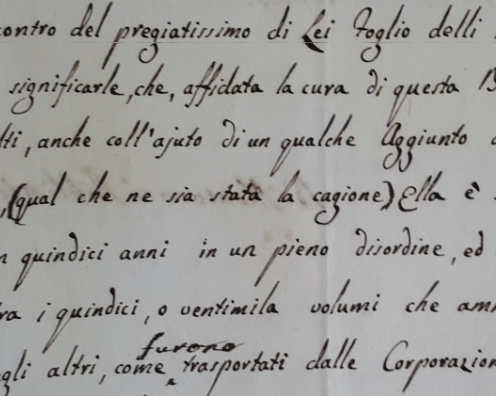 contro del pregiatissimo di Lei Foglio delli
significarle, che, affidata la cura di questa B
tti, anche coll'ajuto di un qualche Aggiunto
, (qual che ne sia stata la cagione) Ella è
n quindici anni in un pieno disordine, ed
ra i quindici, o ventimila volumi che am
furono
gli altri, come trasportati dalle Corporazion